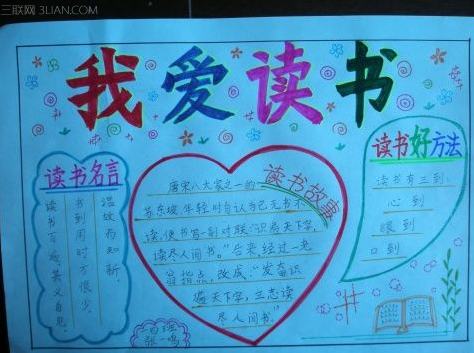 三联网 3LIAN.COM
我爱读书
读书名言
温故而知新。
书到用时方恨少。
读书百遍其义自见。
读书故事
唐宋八大家之一的
苏东坡年轻时自认为已无书不
读，便书写一副对联："识遍天下字，
读尽人间书。"后来，经过一老
翁指点，改成："发奋识
遍天下字，立志读
尽人间书。"
读书好方法
读书有三到：
心到
眼到
口到